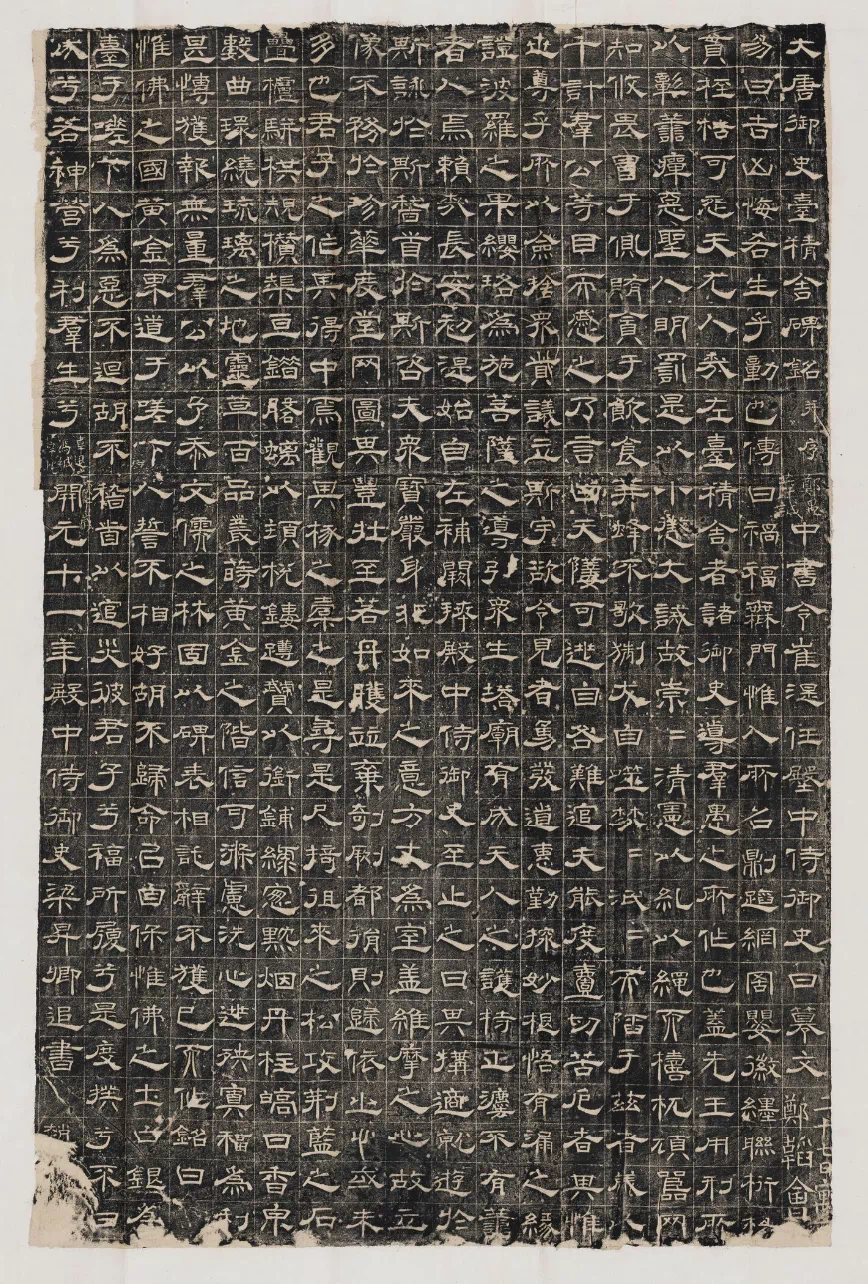 大唐御史臺精舍碑銘并序中書令崔湜任殿中侍御史日纂文
易曰吉凶悔吝生乎動也傳曰禍福無門惟人所召蹈網罟嬰徽纆聯桁
貫桎梏可怨天尤人哉左臺精舍者諸御史導羣愚之所作也蓋先王用刑所
以彰善癉惡聖人明罰是以小懲大誡故崇〻清憲以糺以繩而檮杌頑嚚罔
知攸畏害于側賄貪于飲食荓蜂不歌猘犬自噬焚〻泯〻而陷于茲者歲以
千計羣公等目而愍之乃言曰天隨可逃自咎難逭夫能度壹切苦厄者其惟
世尊乎所以僉捨眾貲議立斯宇欲令見者勇發道惠勤探妙樞悟有漏之緣
證波羅之果纓珞為施菩薩之導引眾生塔廟有成天人之護持正法不有善
者人焉賴哉長安初湜始自左補闕拜殿中侍御史至止之日其構適就遊於
斯詠於斯稽首於斯咨夫眾寶嚴身非如來之意方丈為室蓋維摩之心故立
像不務於珍華度堂罔圖其豐壯至若丹雘並棄剞劂都捐則歸依之心或未
多也君子之作其得中焉觀其椽之橑之是尋是尺掎徂來之松攻荊藍之石
疊櫨駢栱規欑榘亘錯以頭棁鏤蹲贙以銜鋪繚窗黝烟丹柱皜日香泉
數曲環繞琉璃之地靈草百品叢蒔黃金之階信可滌慮洗心逃殃寘福為利
甚博獲報無量羣公以予忝文儒之林固以碑表相託辭不獲已而作銘曰
惟佛之國黃金界道于嗟下人誓不相好胡不歸命已自保惟佛之土白銀為
臺于嗟下人為惡不迴胡不稽首以逭災彼君子兮福所履兮是度撲兮不日
成兮若神營兮利羣生兮開元十一年殿中侍御史梁昇卿追書